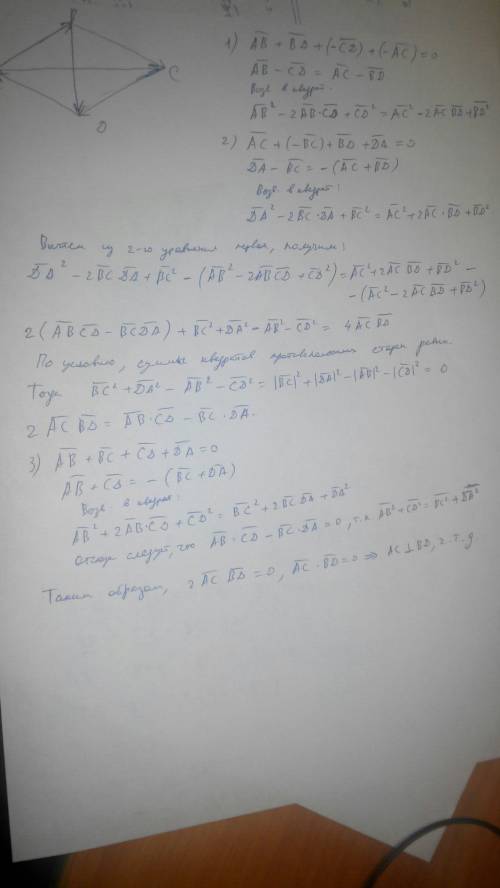 B
C
D
1) AB + BD + (-CD) + (-AC) = 0
AB - CD = AC - BD
Возв. в квадрат
AB² - 2AB·CD + CD² = AC² - 2AC BD + BD²
2) AC + (-BC) + BD + DA = 0
DA - BC = -(AC + BD)
Возв. в квадрат:
DA² - 2BC·DA + BC² = AC² + 2AC·BD + BD²
Вычтем из 2-го уравнения первое, получим:
DA² - 2BC DA + BC² - (AB² - 2AB CD + CD²) = AC² + 2AC BD + BD² -
- (AC² - 2AC BD + BD²)
2(AB CD - BC DA) + BC² + DA² - AB² - CD² = 4AC BD
По условию, суммы квадратов противоположных сторон равны.
Тогда BC² + DA² - AB² - CD² = |BC|² + |DA|² - |AB|² - |CD|² = 0
2 AC BD = AB·CD - BC·DA.
3) AB + BC + CD + DA = 0
AB + CD = -(BC + DA)
Возв. в квадрат:
AB² + 2AB·CD + CD² = BC² + 2BC DA + DA²
Отсюда следует, что AB·CD - BC·DA = 0, т.к. AB² + CD² = BC² + DA²
Таким образом, 2 AC BD = 0, AC·BD = 0 ⇒ AC ⊥ BD, ч.т.д.